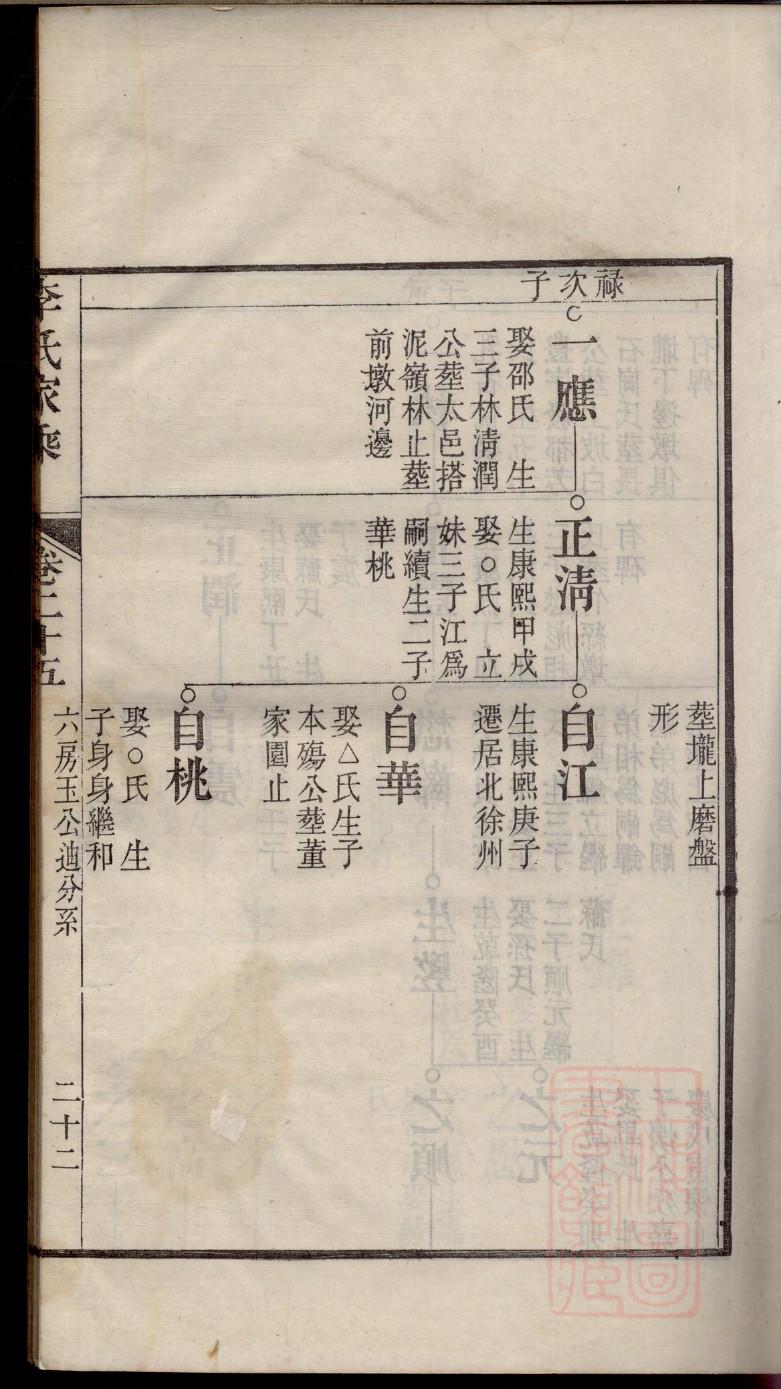 祿次子
一應
娶邵氏　生
三子林清潤
公塟太邑搭
泥嶺林止塟
前墩河邊
正清
生康熙甲戌
娶○氏　立
妹三子江爲
嗣續生二子
華桃
塟壠上磨盤
形
自江
生康熙庚子
遷居北徐州
自華
娶△氏生子
本殤公塟董
家園止
自桃
娶○氏　生
子身身繼和
李氏家乘
卷二十五
六房玉公迪分系
二十二